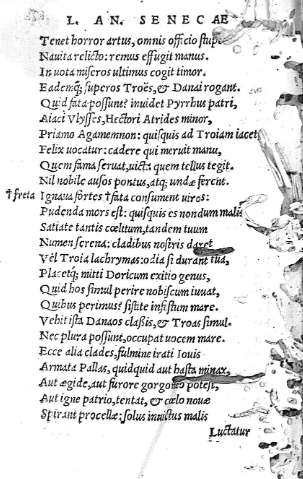 L. AN. SENECAE
Tenet horror artus, omnis officio stupet
Nauita relicto: remus effugit manus.
In uota miseros ultimus cogit timor.
Eademq; superos Troës, & Danai rogant.
Quid fata possunt? inuidet Pyrrhus patri,
Aiaci Vlysses, Hectori Atrides minor,
Priamo Agamemnon: quisquis ad Troiam iacet
Felix uocatur: cadere qui meruit manu,
Quem fama seruat, uicta quem tellus tegit.
Nil nobile ausos pontus, atq; undæ ferent.
† freta Ignaua fortes † fata consument uiros:
Pudenda mors est: quisquis es nondum malis
Satiate tantis cœlitum, tandem tuum
Numen serena: cladibus nostris daret
Vel Troia lachrymas: odia si durant tua,
Placetq; mitti Doricum exitio genus,
Quid hos simul perire nobiscum iuuat,
Quibus perimus? sistite infestum mare.
Vehit ista Danaos classis, & Troas simul.
Nec plura possunt, occupat uocem mare.
Ecce alia clades, fulmine irati Iouis
Armata Pallas, quidquid aut hasta minax,
Aut ægide, aut furore gorgoneo potest,
Aut igne patrio, tentat, & cœlo nouæ
Spirant procellæ: solus inuictus malis
Luctatur